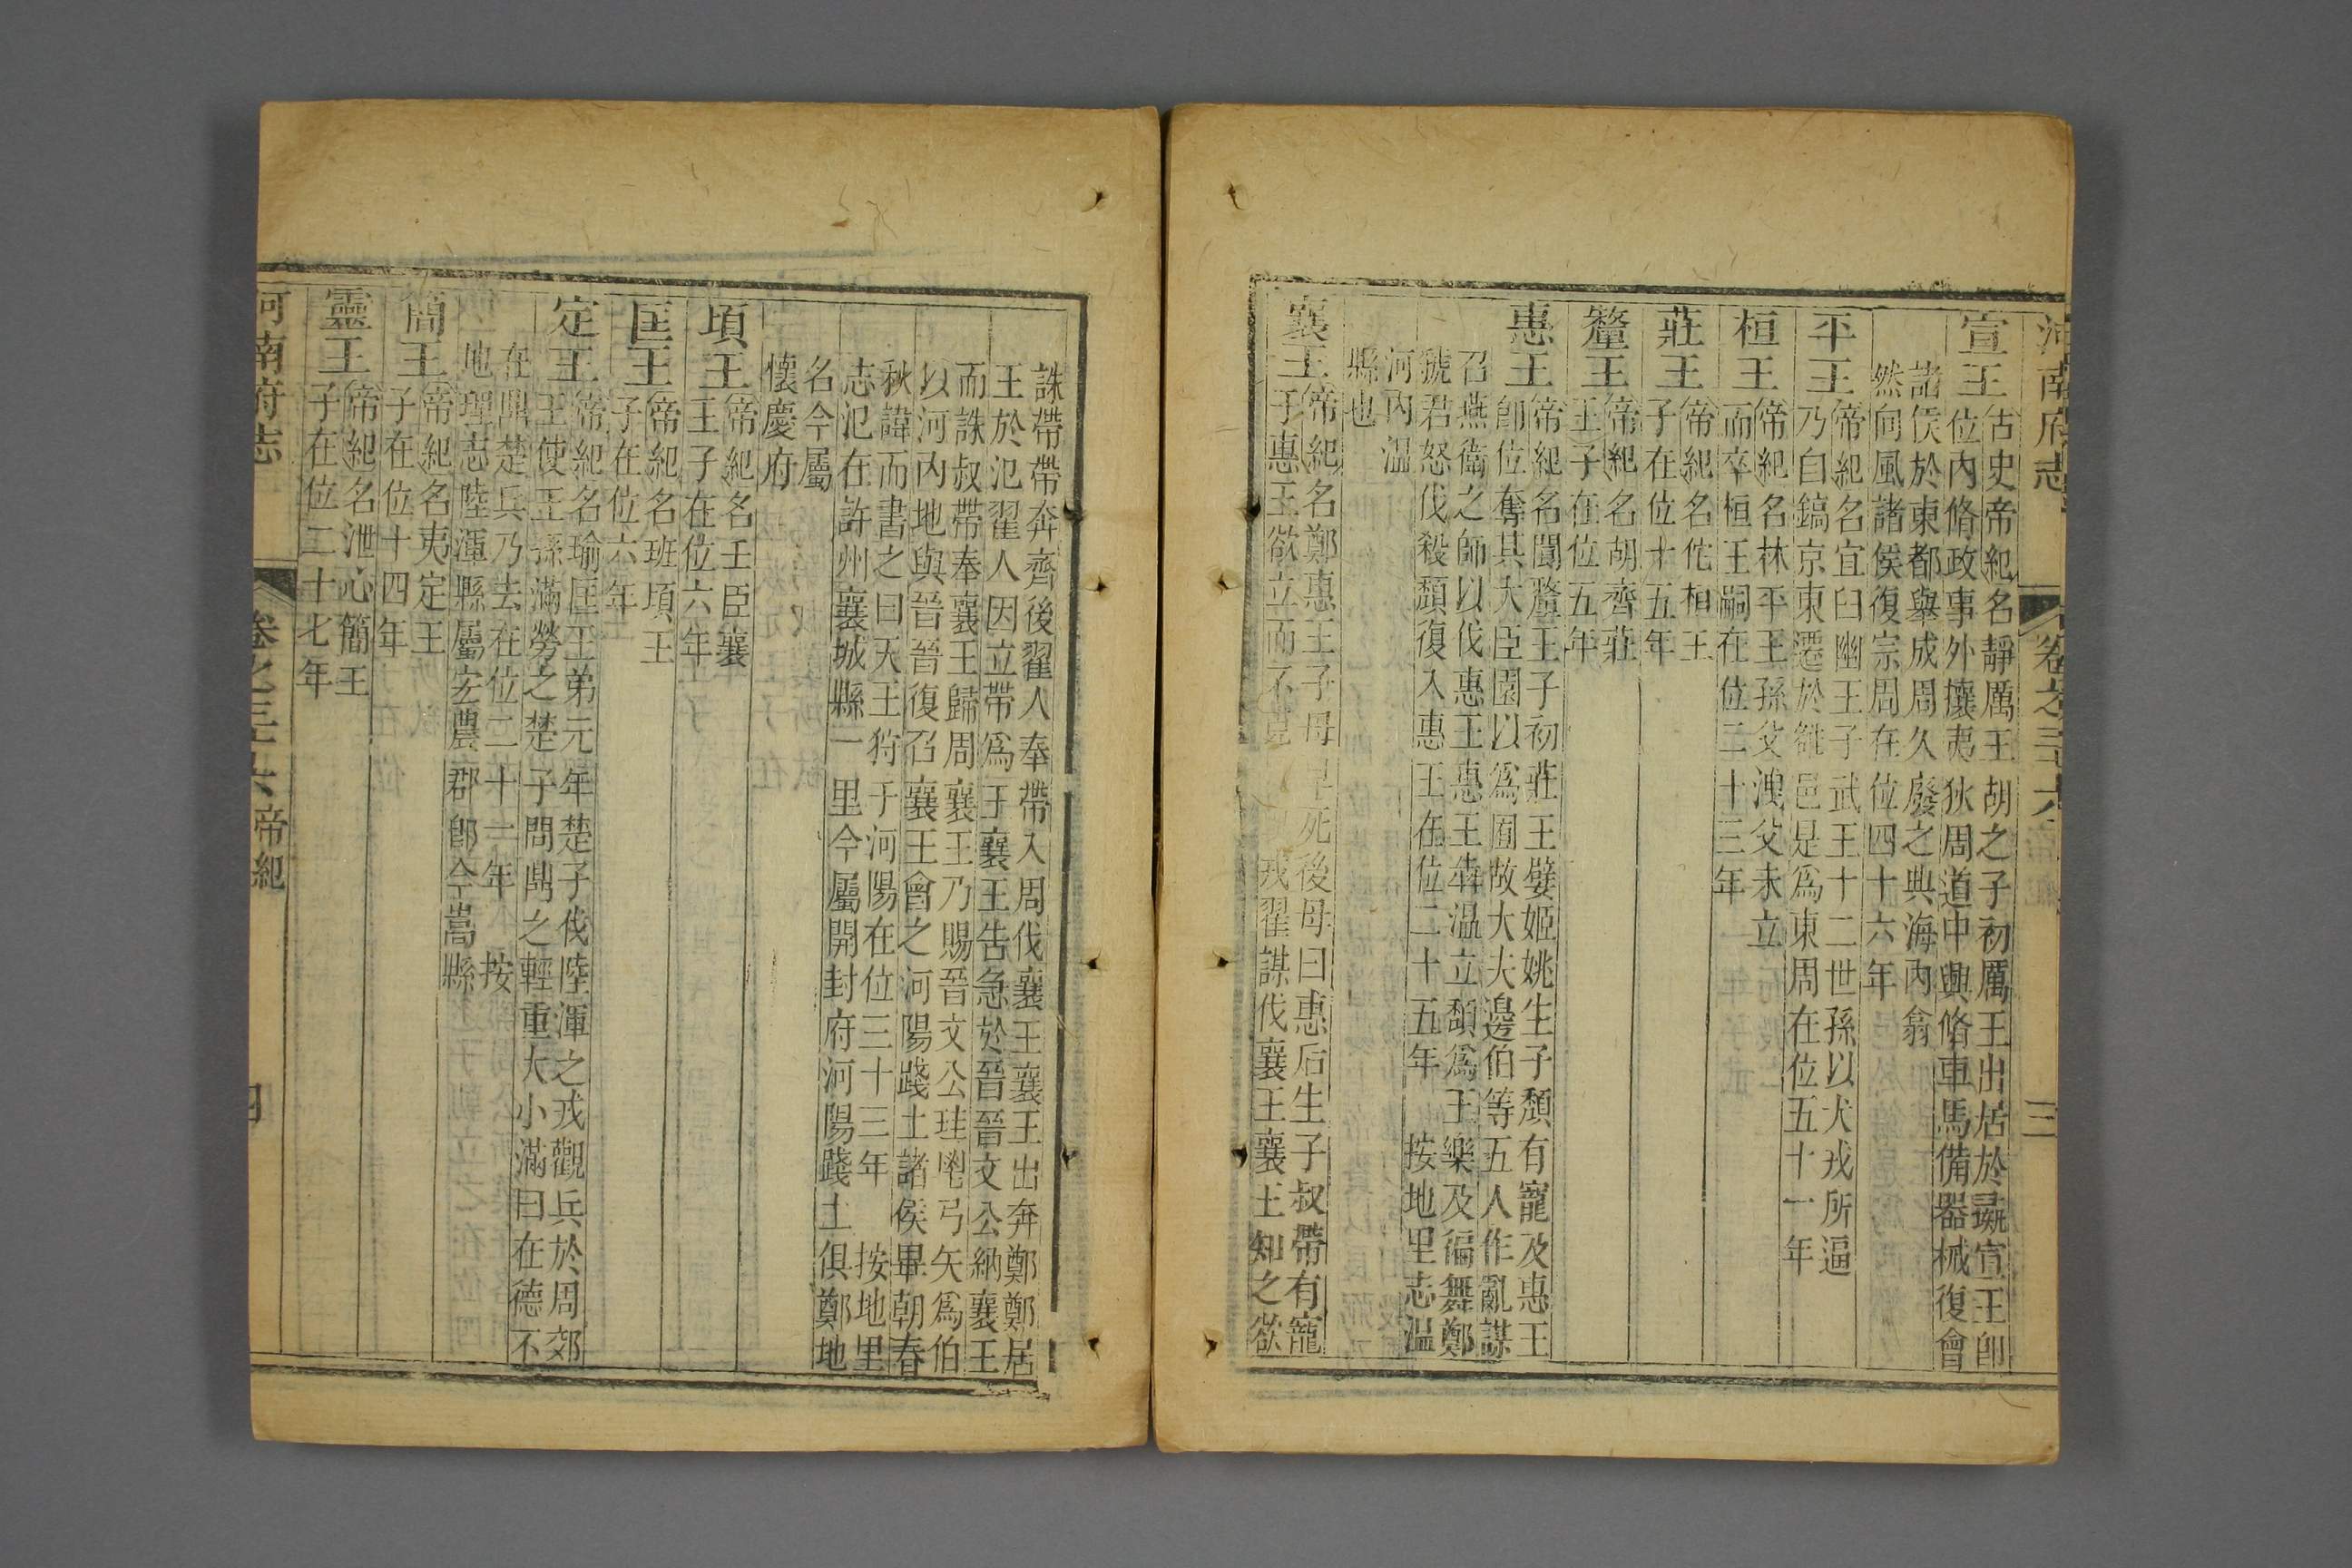 河南府志 卷之三十六 三
宣王
古史帝紀名靜厲王胡之子初厲王出居於彘宣王卽
位內脩政事外攘夷狄周道中興脩車馬備器械復會
諸侯於東都舉成周久廢之典海內翕
然向風諸侯復宗周在位四十六年
平王
帝紀名宜臼幽王子武王十二世孫以犬戎所逼
乃自鎬京東遷於雒邑是爲東周在位五十一年
桓王
帝紀名林平王孫父洩父未立
而卒桓王嗣在位二十三年
莊王
帝紀名佗桓王
子在位十五年
釐王
帝紀名胡齊莊
王子在位五年
惠王
帝紀名閬釐王子初莊王嬖姬姚生子頹有寵及惠王
卽位奪其大臣園以爲囿故大夫邊伯等五人作亂謀
召燕衛之師以伐惠王惠王犇溫立頹爲王樂及徧舞鄭
虢君怒伐殺頹復入惠王在位二十五年 按地里志溫
河內溫
縣也
襄王
帝紀名鄭惠王子母早死後母曰惠后生子叔帶有寵
于惠王欲立而不 戎翟謀伐襄王襄王知之欲
誅帶帶奔齊後翟人奉帶入周伐襄王襄王出奔鄭鄭居
王於氾翟人因立帶爲王襄王告急於晉晉文公納襄王
而誅叔帶奉襄王歸周襄王乃賜晉文公珪鬯弓矢爲伯
以河內地與晉晉復召襄王會之河陽踐土諸侯畢朝春
秋諱而書之曰天王狩于河陽在位三十三年 按地里
志氾在許州襄城縣一里今屬開封府河陽踐土俱鄭地
名今屬
懷慶府
頃王
帝紀名壬臣襄
王子在位六年
匡王
帝紀名班頃王
子在位六年
定王
帝紀名瑜匡王弟元年楚子伐陸渾之戎觀兵於周郊
王使王孫滿勞之楚子問鼎之輕重大小滿曰在德不
在鼎楚兵乃去在位二十一年 按
地理志陸渾縣屬宏農郡卽今嵩縣
簡王
帝紀名夷定王
子在位十四年
靈王
帝紀名泄心簡王
子在位二十七年
河南府志 卷之三十六 帝紀 四